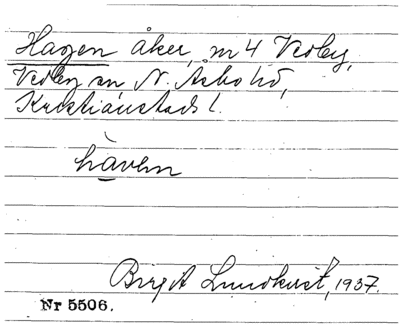 Hagen åker, nr 4 Vedby,
Vedby sn, N. Åsbo hd,
Kristianstads l.
haven
Birgit Lundkvist, 1937.
Nr 5506.